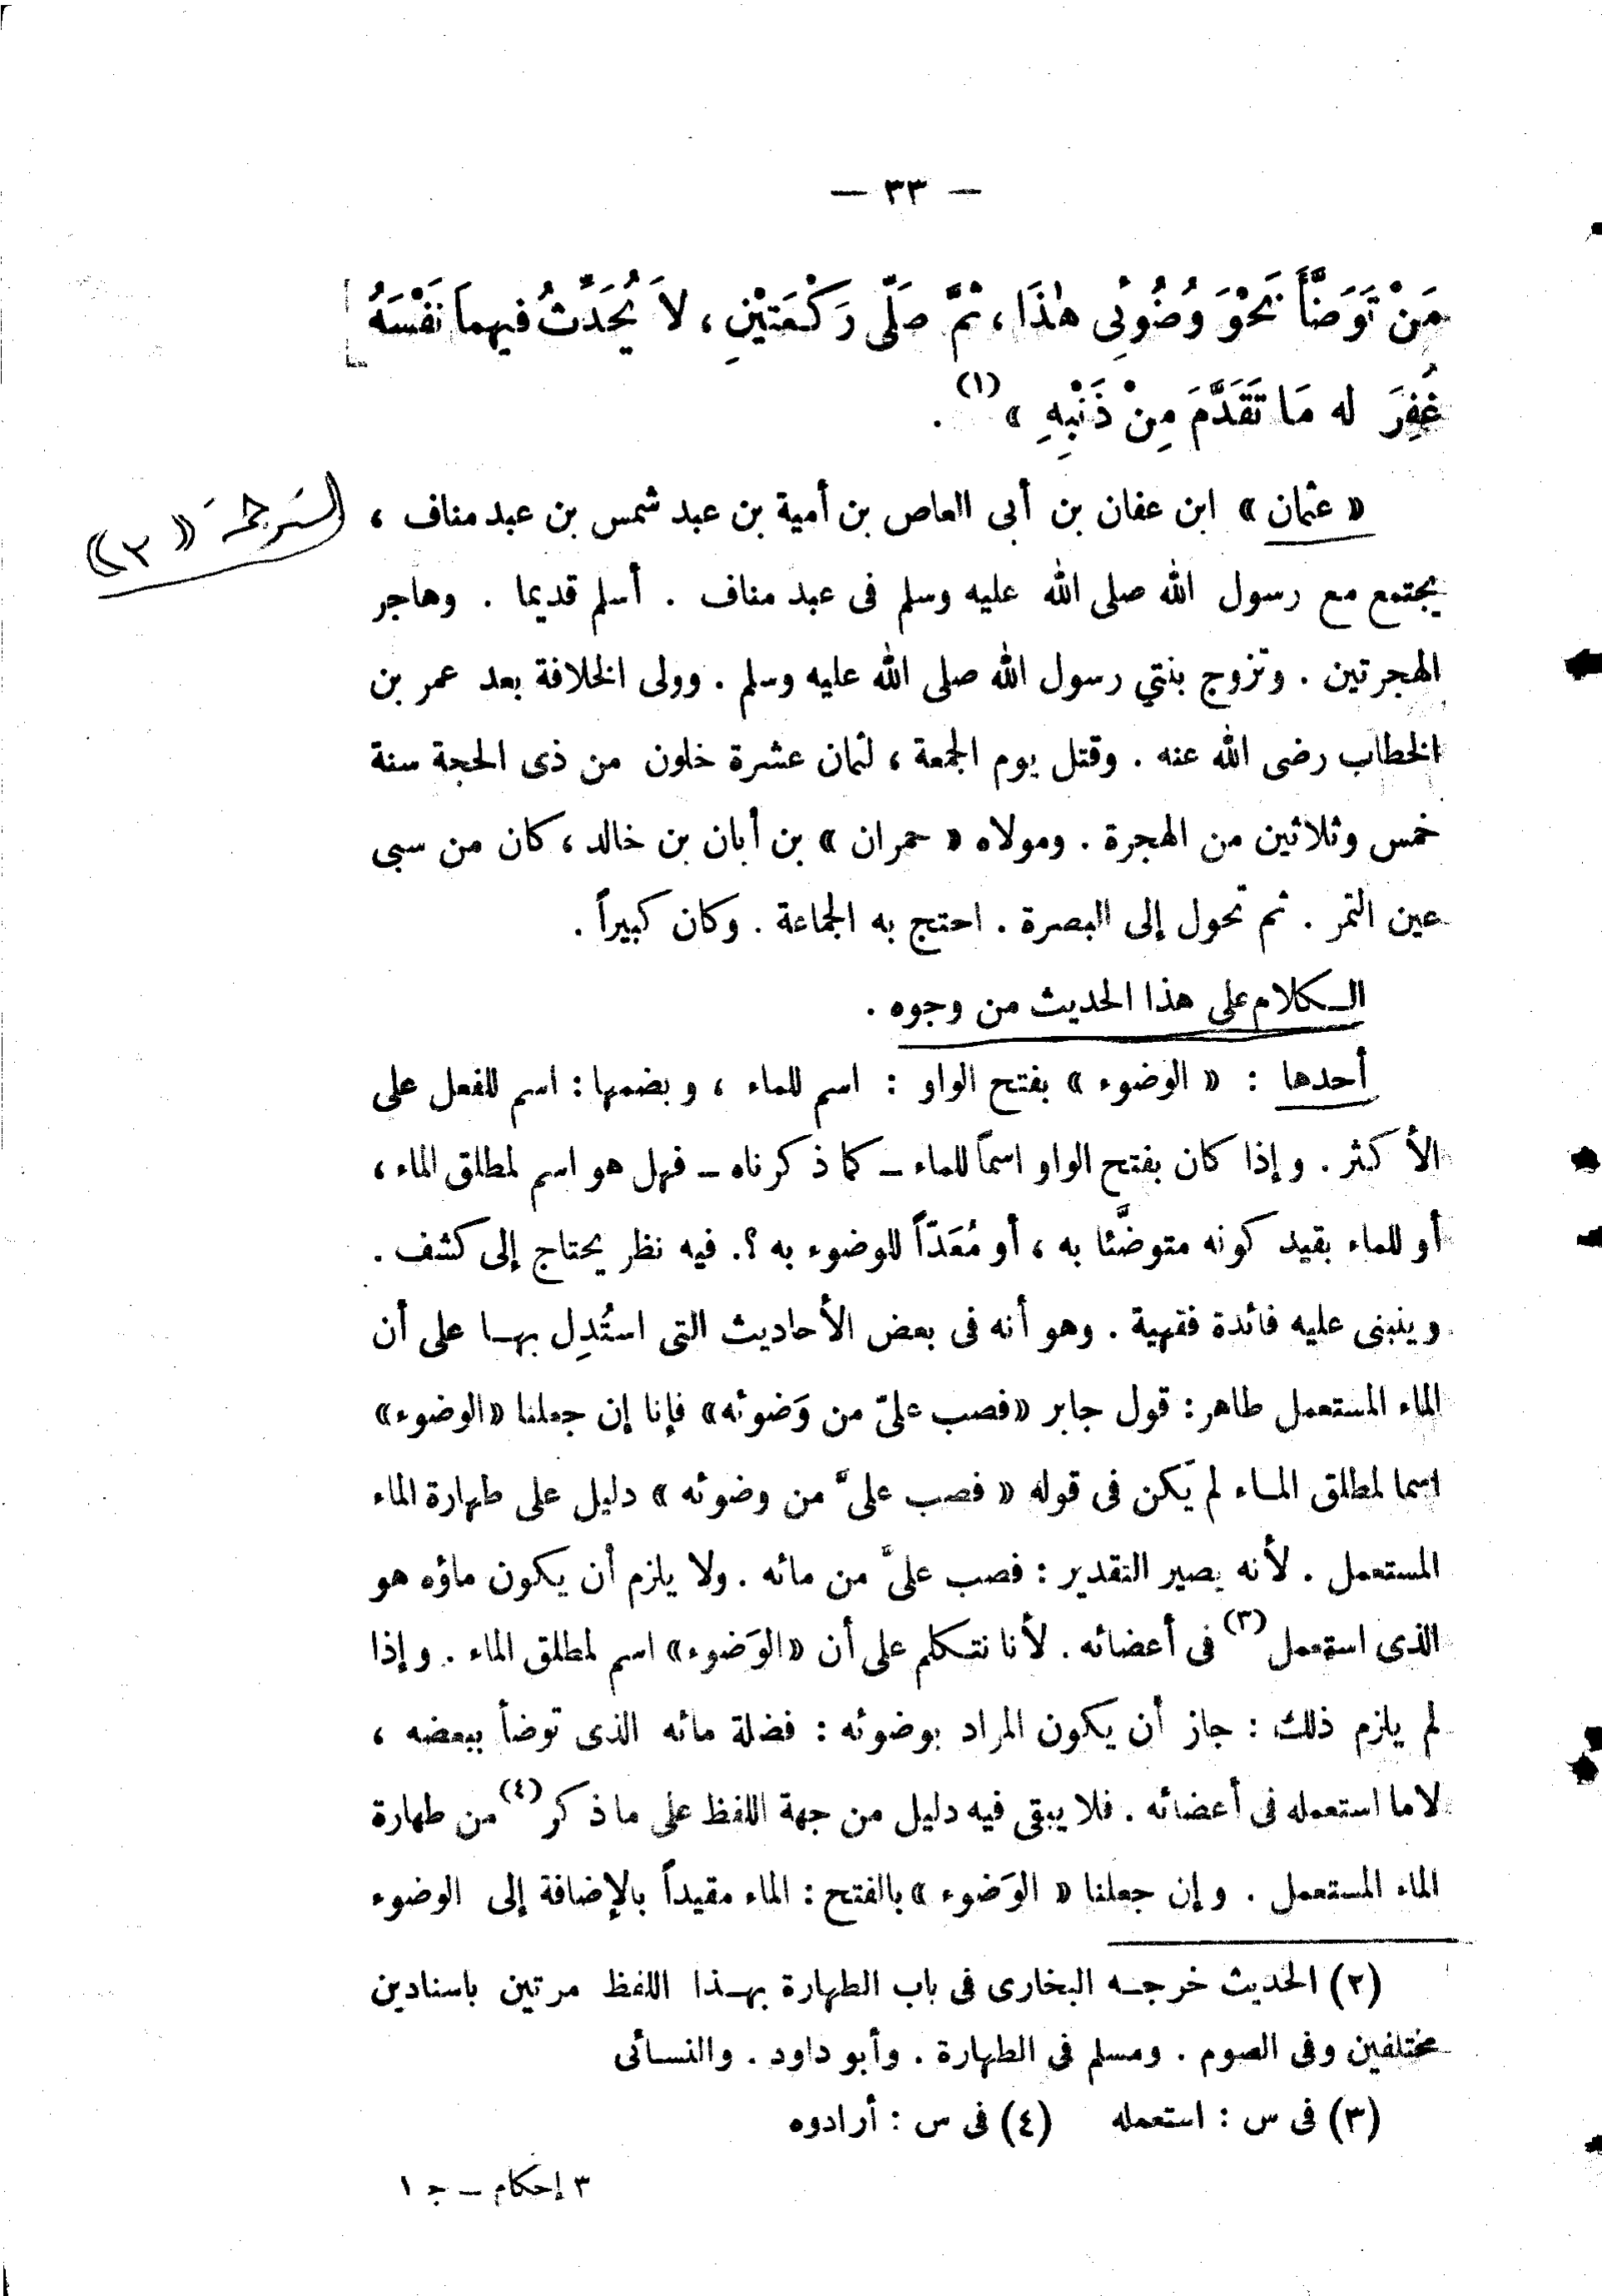 — ٣٣ —
مَنْ تَوَضَّأَ نَحْوَ وُضُوئِى هٰذَا، ثمَّ صَلَّى رَكْعَتيْنِ، لاَ يُحَدِّثُ فيهماَ نَفْسَهُ
غُفِرَ له مَا تَقَدَّمَ مِنْ ذَنْبِهِ » (١) .
« عثمان » ابن عفان بن أبى العاص بن أمية بن عبد شمس بن عبد مناف ،
الترجمة « ٣ »
يجتمع مع رسول الله صلى الله عليه وسلم فى عبد مناف . أسلم قديما . وهاجر
الهجرتين . وتزوج بنتي رسول الله صلى الله عليه وسلم . وولى الخلافة بعد عمر بن
الخطاب رضى الله عنه . وقتل يوم الجمعة ، لثمان عشرة خلون من ذى الحجة سنة
خمس وثلاثين من الهجرة . ومولاه « حمران » بن أبان بن خالد ، كان من سبى
عين التمر . ثم تحول إلى البصرة . احتج به الجماعة . وكان كبيراً .
الـكلام على هذا الحديث من وجوه .
أحدها : « الوضوء » بفتح الواو : اسم للماء ، و بضمها : اسم للفعل على
الأكثر . و إذا كان بفتح الواو اسمًا للماء ــ كما ذكرناه ــ فهل هو اسم لمطلق الماء ،
أو للماء بقيد كونه متوضَّئا به ، أو مُعَدّاً للوضوء به ؟. فيه نظر يحتاج إلى كشف .
و ينبنى عليه فائدة فقهية . وهو أنه فى بعض الأحاديث التى استُدِل بهـا على أن
الماء المستعمل طاهر : قول جابر «فصب علىّ من وَضوئه» فإنا إن جعلنا «الوضوء»
اسما لمطلق المـاء لم يَكن فى قوله « فصب علىَّ من وضوئه » دليل على طهارة الماء
المستعمل . لأنه يصير التقدير : فصب علىَّ من مائه . ولا يلزم أن يكون ماؤه هو
الذى استعمل (٣) فى أعضائه . لأنا نتـكلم على أن «الوَضوء» اسم لمطلق الماء . و إذا
لم يلزم ذلك : جاز أن يكون المراد بوضوئه : فضلة مائه الذى توضأ ببعضه ،
لا ما استعمله فى أعضائه . فلا يبقى فيه دليل من جهة اللفظ على ما ذكر (٤) من طهارة
الماء المستعمل . و إن جعلنا « الوَضوء » بالفتح : الماء مقيداً بالإضافة إلى الوضوء
(٢) الحديث خرجـه البخارى فى باب الطهارة بهـذا اللفظ مرتين باسنادين
مختلفين وفى الصوم . ومسلم فى الطهارة . وأبو داود . والنسـائى
(٣) فى س : استعمله (٤) فى س : أرادوه
٣ إحكام ــ جـ ١